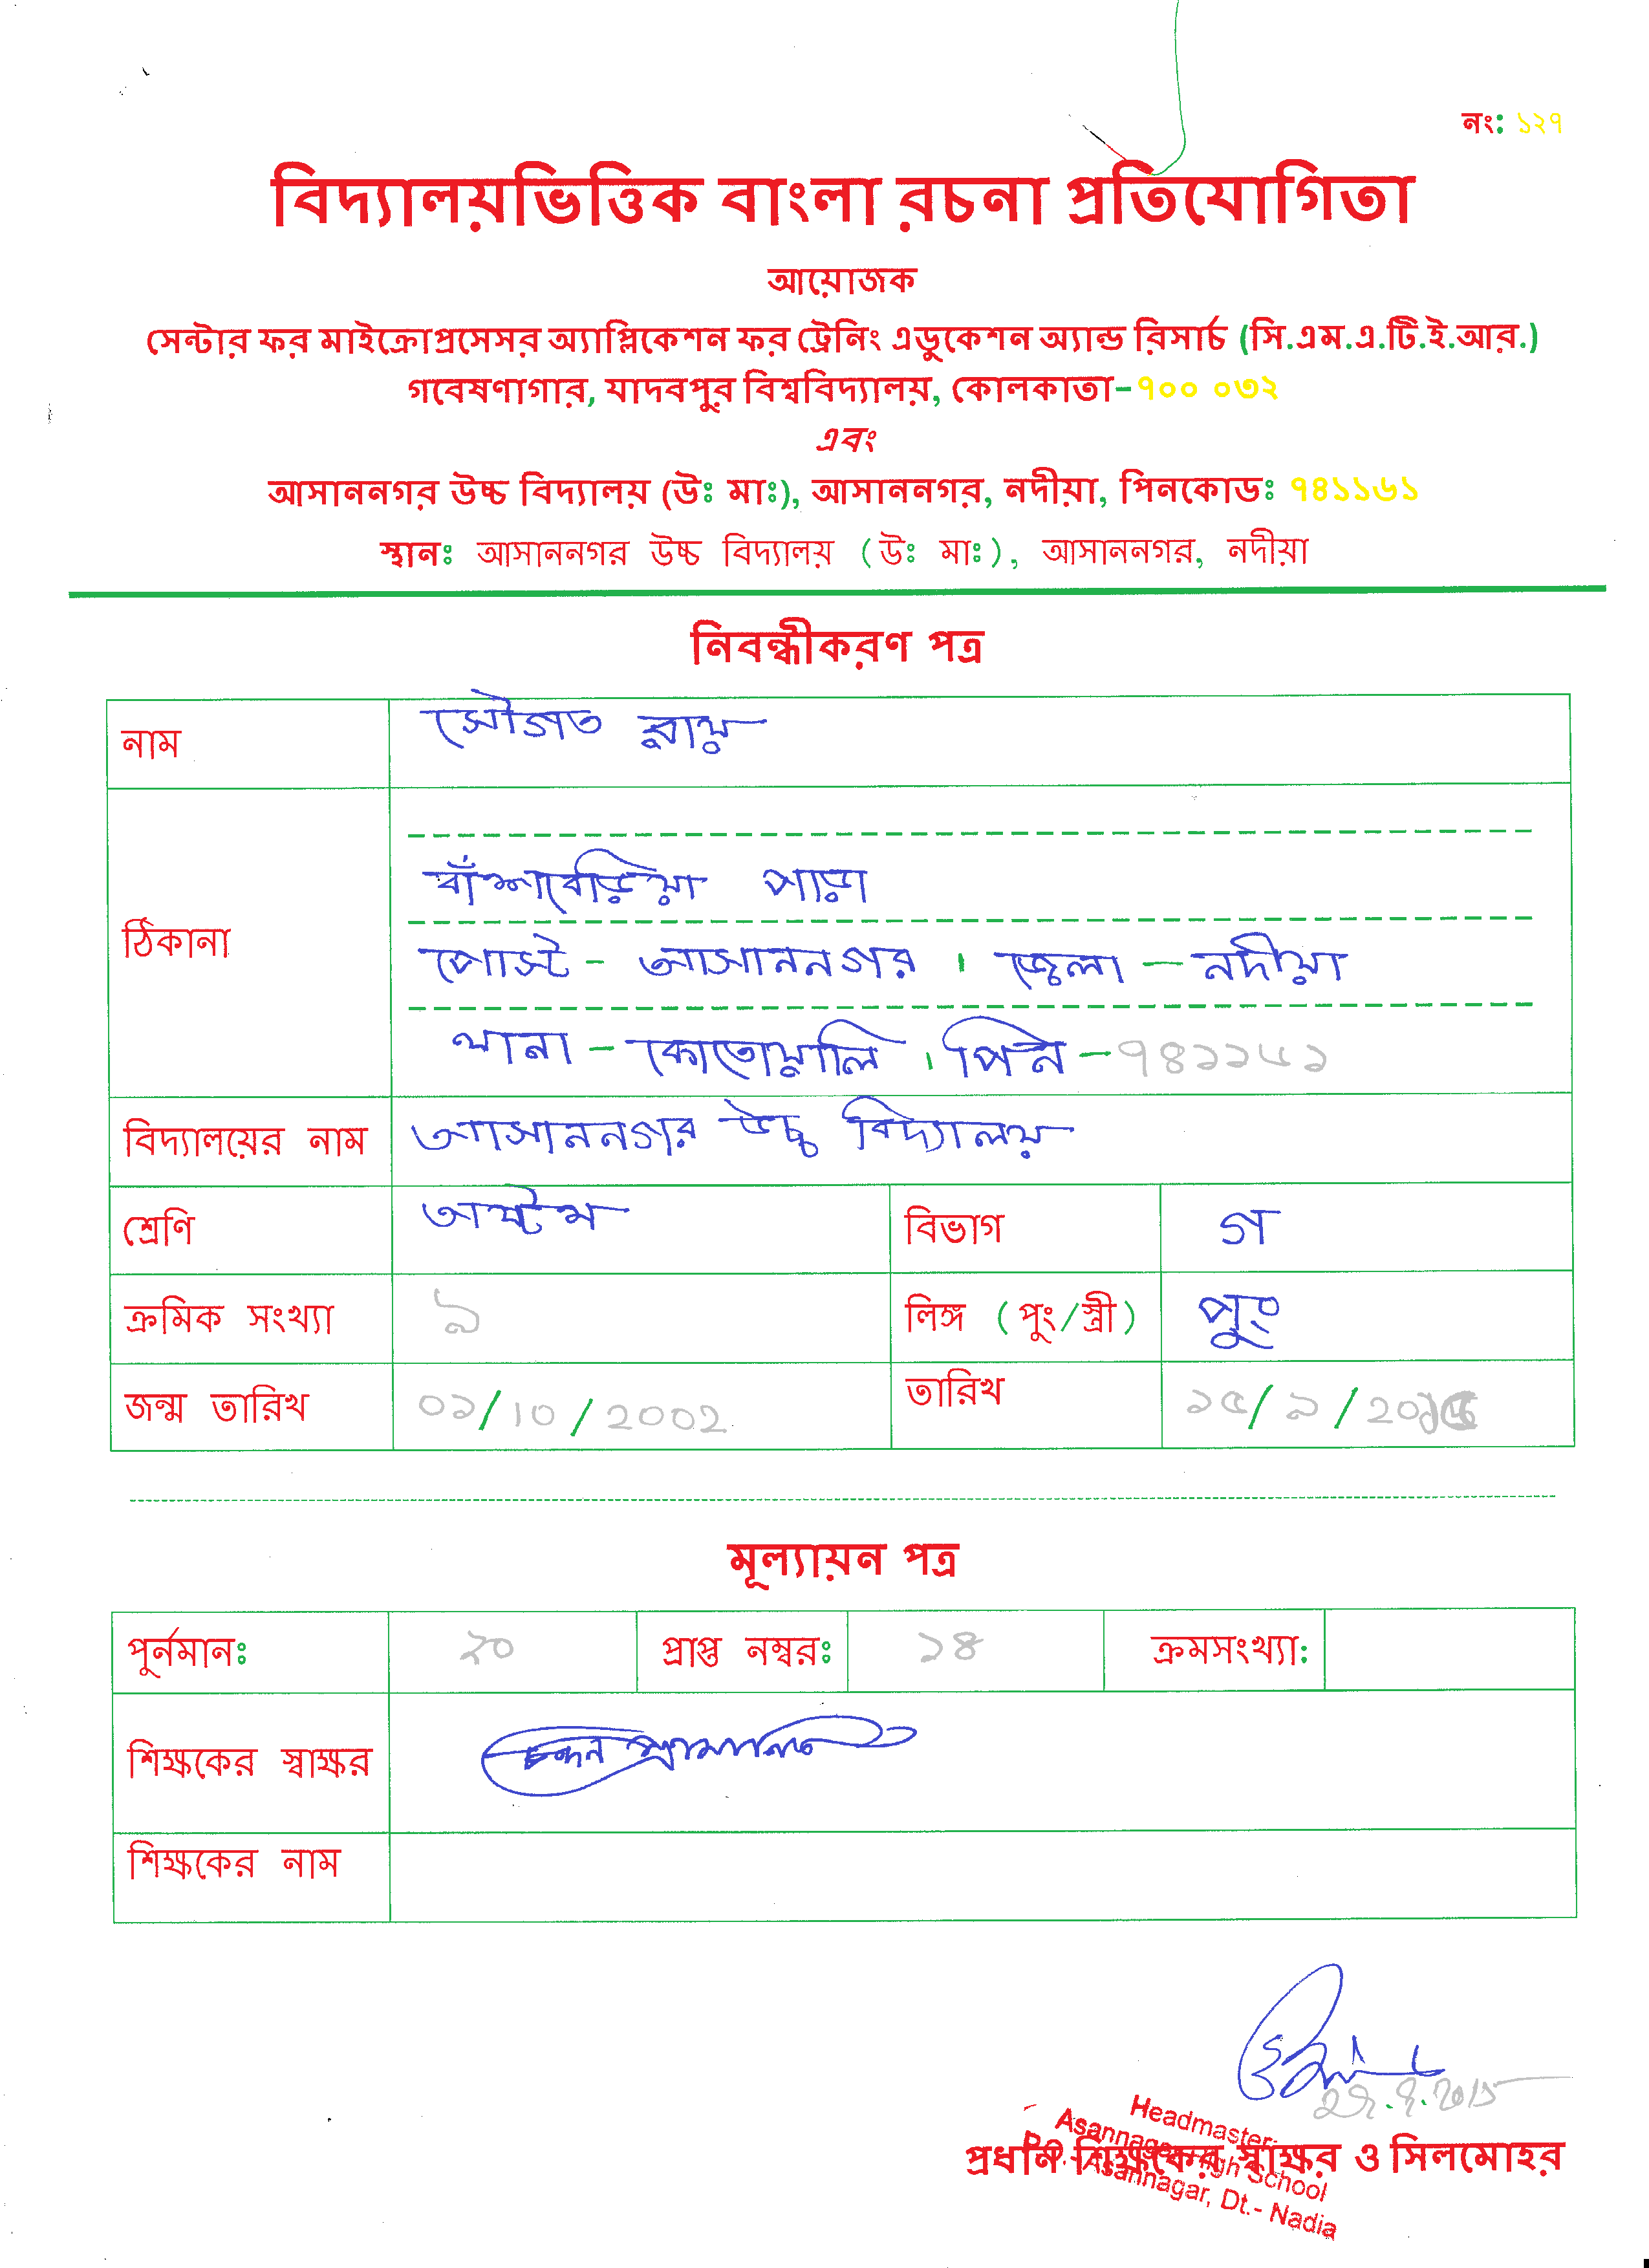 নং: ১২৭
বিদ্যালয়ভিত্তিক বাংলা রচনা প্রতিযোগিতা
আয়োজক
সেন্টার ফর মাইক্রোপ্রসেসর অ্যাপ্লিকেশন ফর ট্রেনিং এডুকেশন অ্যান্ড রিসার্চ (সি.এম.এ.টি.ই.আর.)
গবেষণাগার, যাদবপুর বিশ্ববিদ্যালয়, কোলকাতা-৭০০ ০৩২
এবং
আসাননগর উচ্চ বিদ্যালয় (উঃ মাঃ), আসাননগর, নদীয়া, পিনকোডঃ ৭৪১১৬১
স্থানঃ আসাননগর উচ্চ বিদ্যালয় (উঃ মাঃ), আসাননগর, নদীয়া
নিবন্ধীকরণ পত্র
নাম সৌগত রায়
ঠিকানা বাঁশবেড়িয়া পাড়া
পোস্ট - আসাননগর । জেলা - নদীয়া
থানা - কোতোয়ালি । পিন - ৭৪১১৬১
বিদ্যালয়ের নাম আসাননগর উচ্চ বিদ্যালয়
শ্রেণি অষ্টম বিভাগ গ
ক্রমিক সংখ্যা ৯ লিঙ্গ (পুং/স্ত্রী) পুং
জন্ম তারিখ ০১/10/2002 তারিখ ১৫/৯/2015
মূল্যায়ন পত্র
পুর্নমানঃ ২০ প্রাপ্ত নম্বরঃ ১৪ ক্রমসংখ্যা:
শিক্ষকের স্বাক্ষর চন্দন প্রামানিক
শিক্ষকের নাম
22.9.2015
Headmaster
Asannagar High School
P.O.- Asannagar, Dt.- Nadia
প্রধান শিক্ষকের স্বাক্ষর ও সিলমোহর